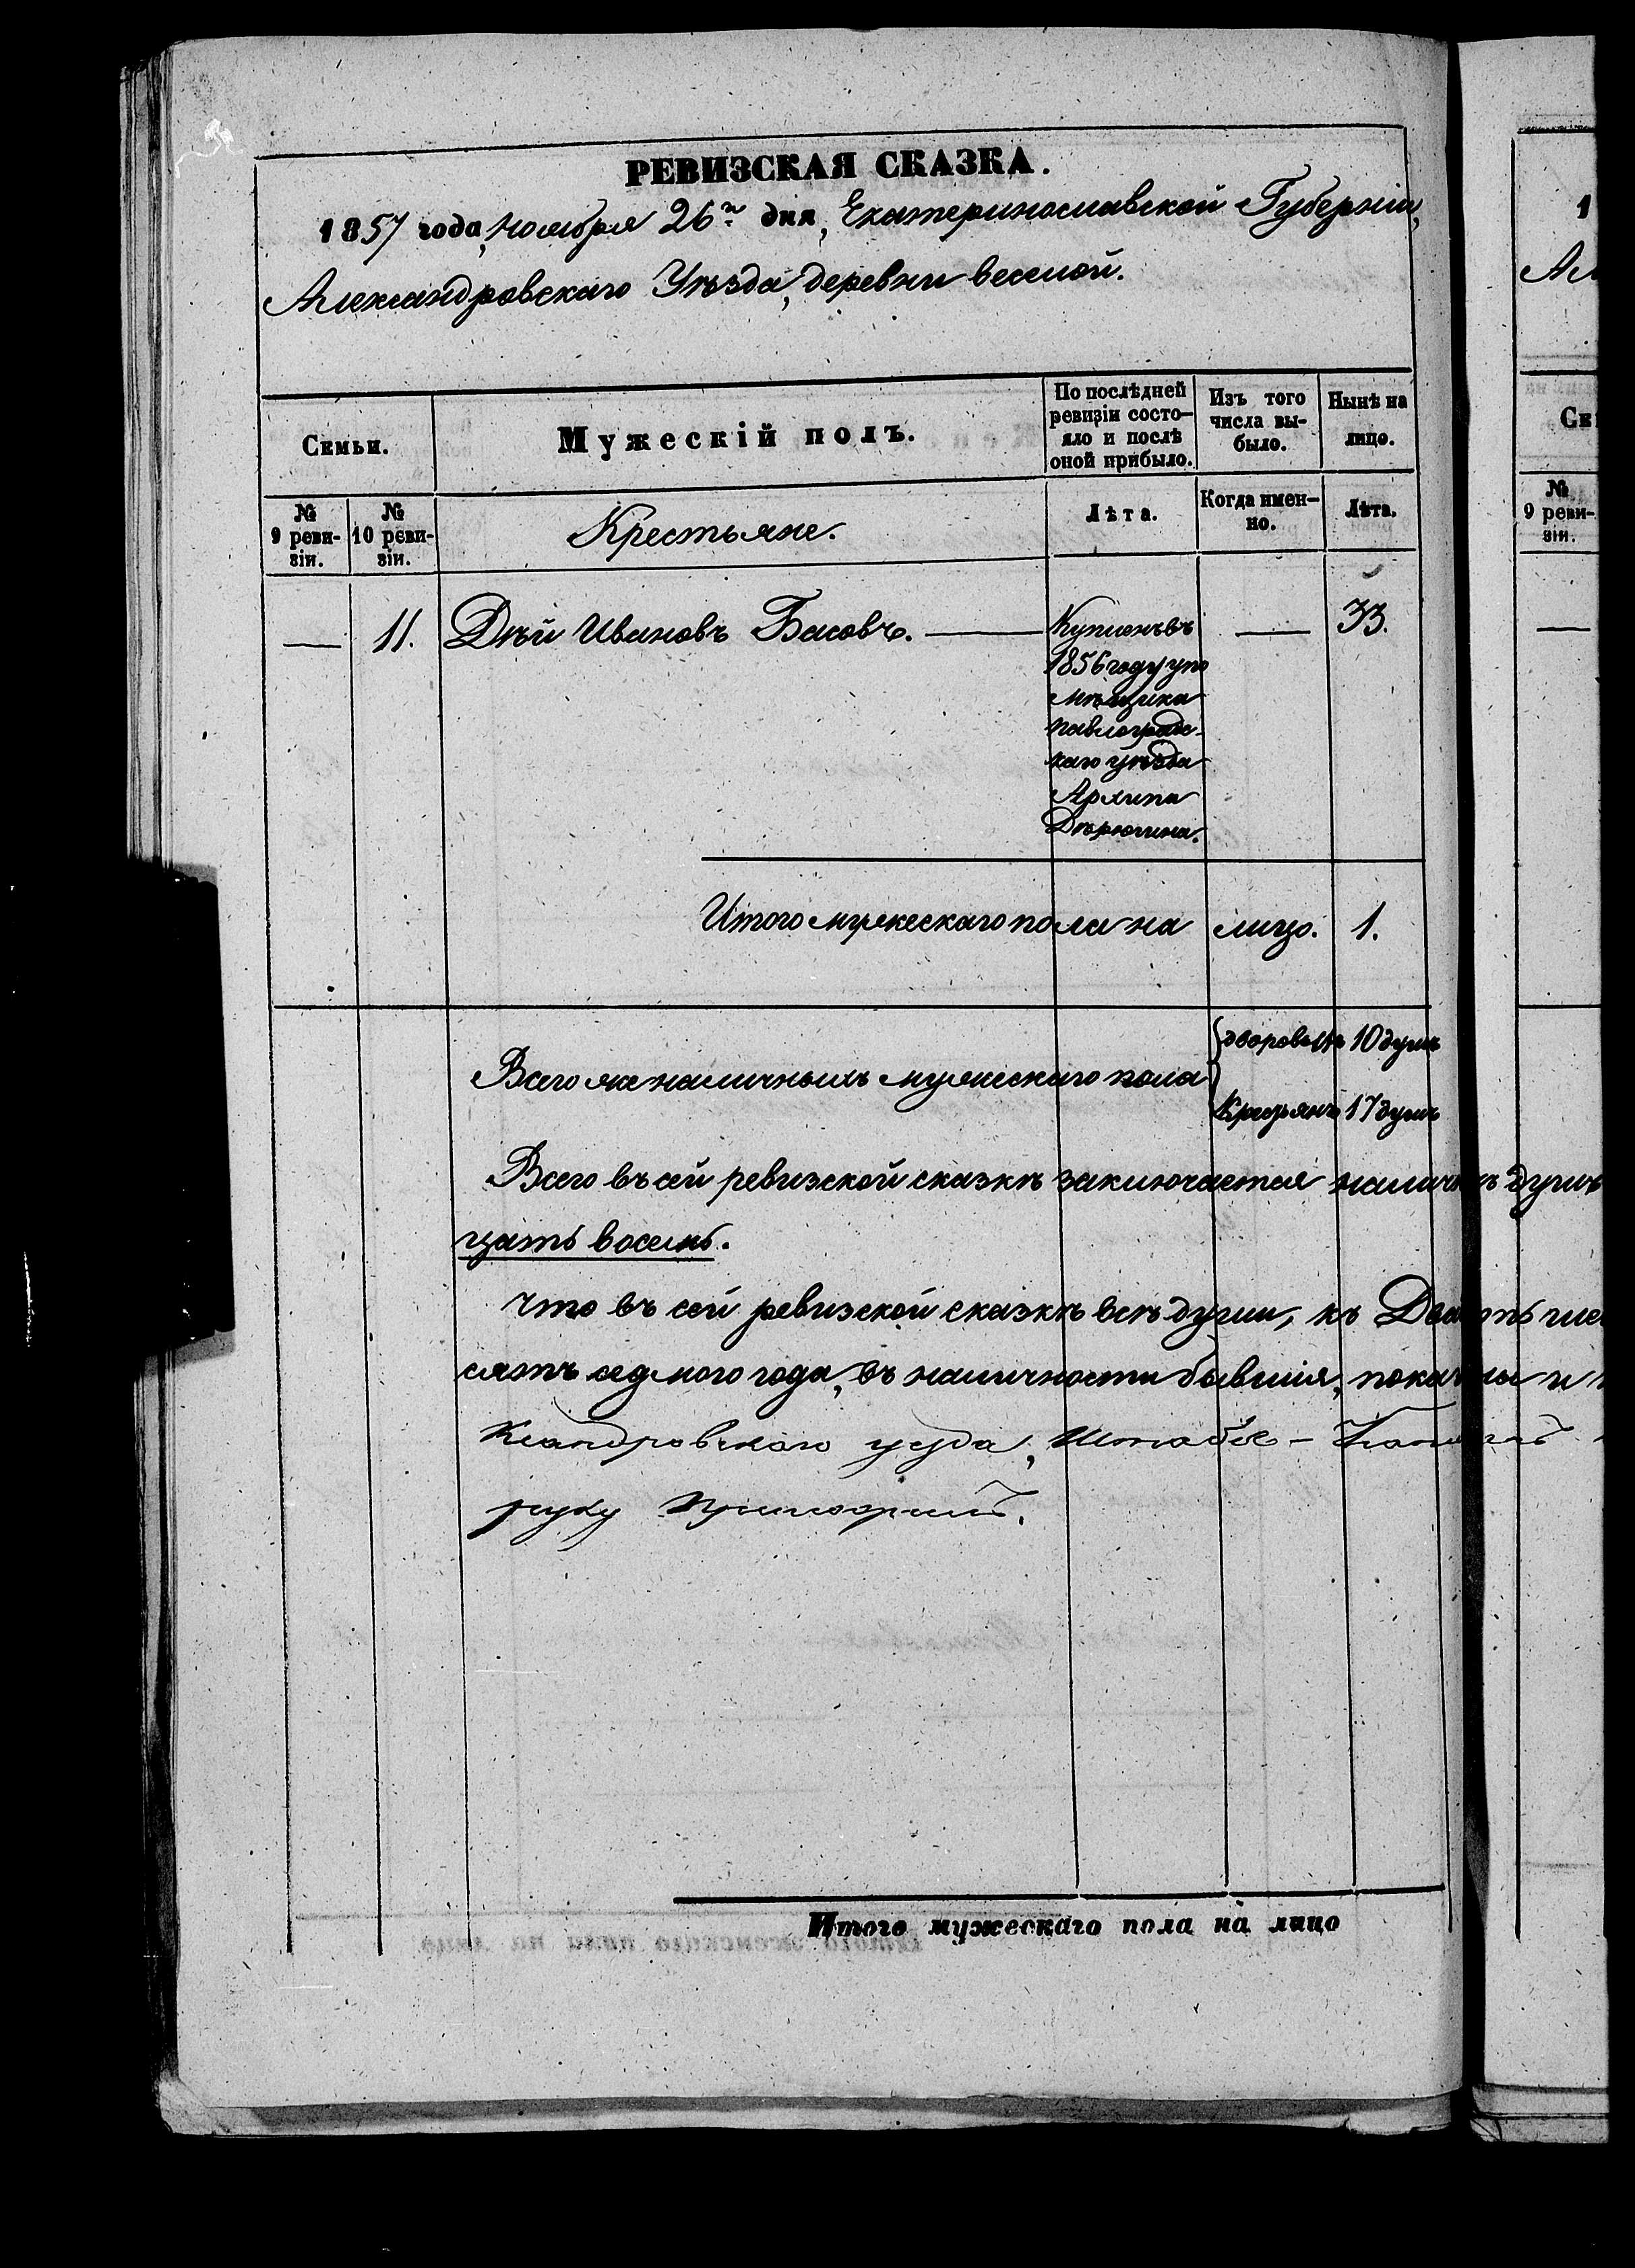 РЕВИЗСКАЯ СКАЗКА.
1857 года, Ноября 26го дня, Екатеринославской Губерніи,
Александровскаго Уѣзда, деревни веселой.
Семьи.
Мужескій полъ.
По послѣдней ревизіи состо-
яло и послѣ оной прибыло.
Изъ того числа вы-
было.
Нынѣ на лицо.
№ 9 реви-
зіи.
№ 10 реви-
зіи.
Крестьяне.
Лѣта.
Когда имен-
но.
Лѣта.
— 11. Ивановъ Басовъ. — Купленъ въ — 33.
1856 году у по
мѣщика
павлоградс-
каго уѣзда
Итого мужескаго пола на лицо. 1.
дворовыхъ 10 душъ
Всего же наличныхъ мужескаго пола
Крестьянъ 17 душъ
Всего въ сей ревизской сказкѣ заключается душъ
цать восемь.
что въ сей ревизской сказкѣ всѣ души, къ
сятъ седмого года, въ наличности бывшія,
ксандровскаго уезда, Штабсъ-
руку приложилъ.
Итого мужескаго пола на лицо
1
Ал
Се
№
9 реви-
зіи.
—